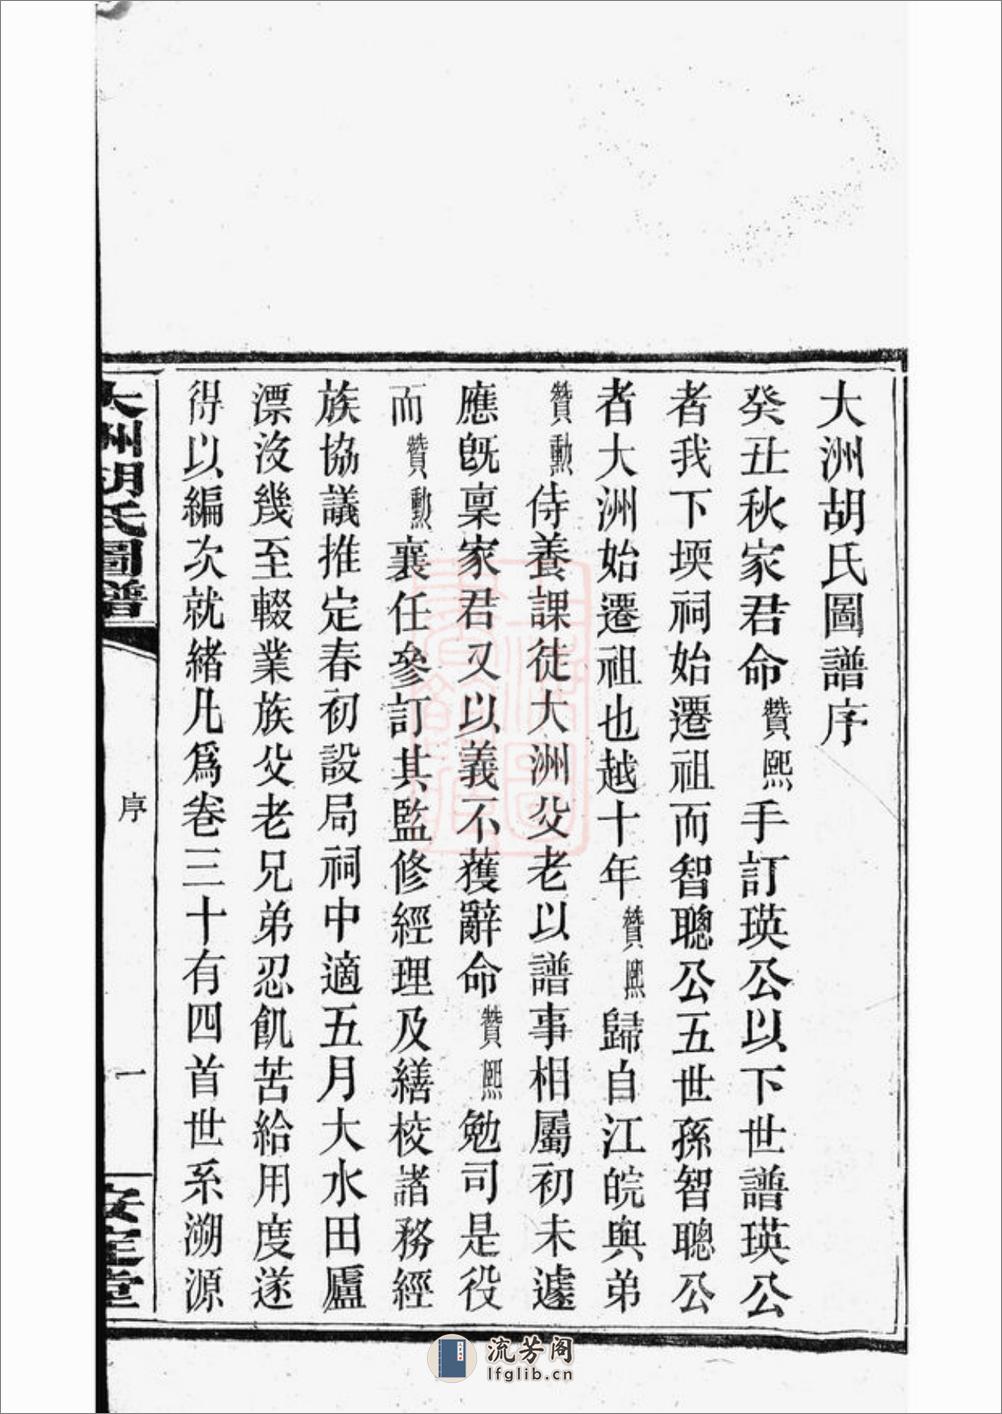 大洲胡氏圖譜序
癸丑秋家君命贊熙手訂瑛公以下世譜瑛公
者我下堧祠始遷祖而智聰公五世孫智聰公
者大洲始遷祖也越十年贊熙歸自江皖與弟
贊勳侍養課徒大洲父老以譜事相屬初未遽
應旣稟家君又以義不獲辭命贊熙勉司是役
而贊勳襄任參訂其監修經理及繕校諸務經
族協議推定春初設局祠中適五月大水田廬
漂沒幾至輟業族父老兄弟忍飢苦給用度遂
得以編次就緒凡爲卷三十有四首世系溯源
大洲胡氏圖譜
序
一
安定堂
流芳阁
lfglib.cn